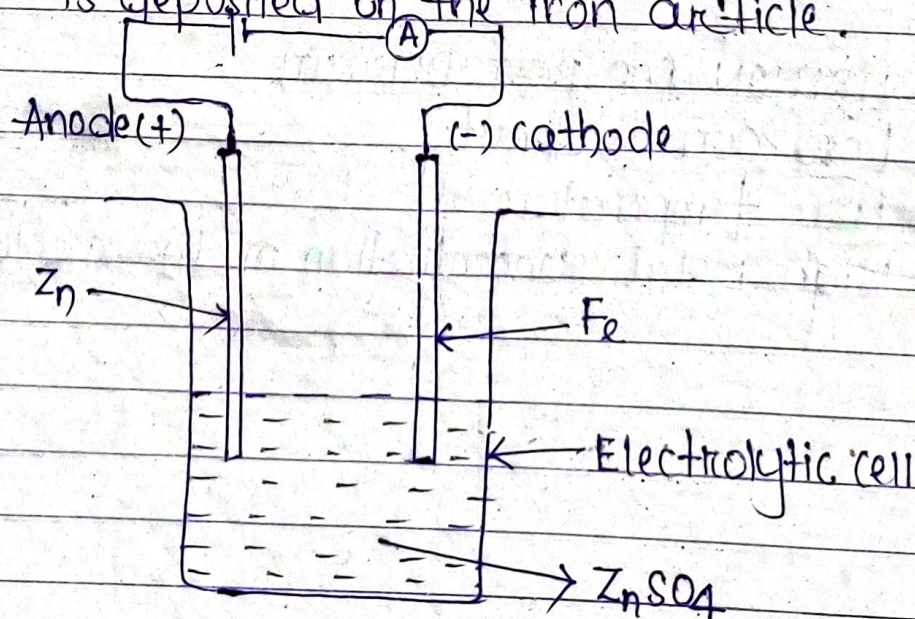 is deposited on the iron article.
A
Anode(+)
(-) Cathode
Zn
Fe
Electrolytic cell
ZnSO4